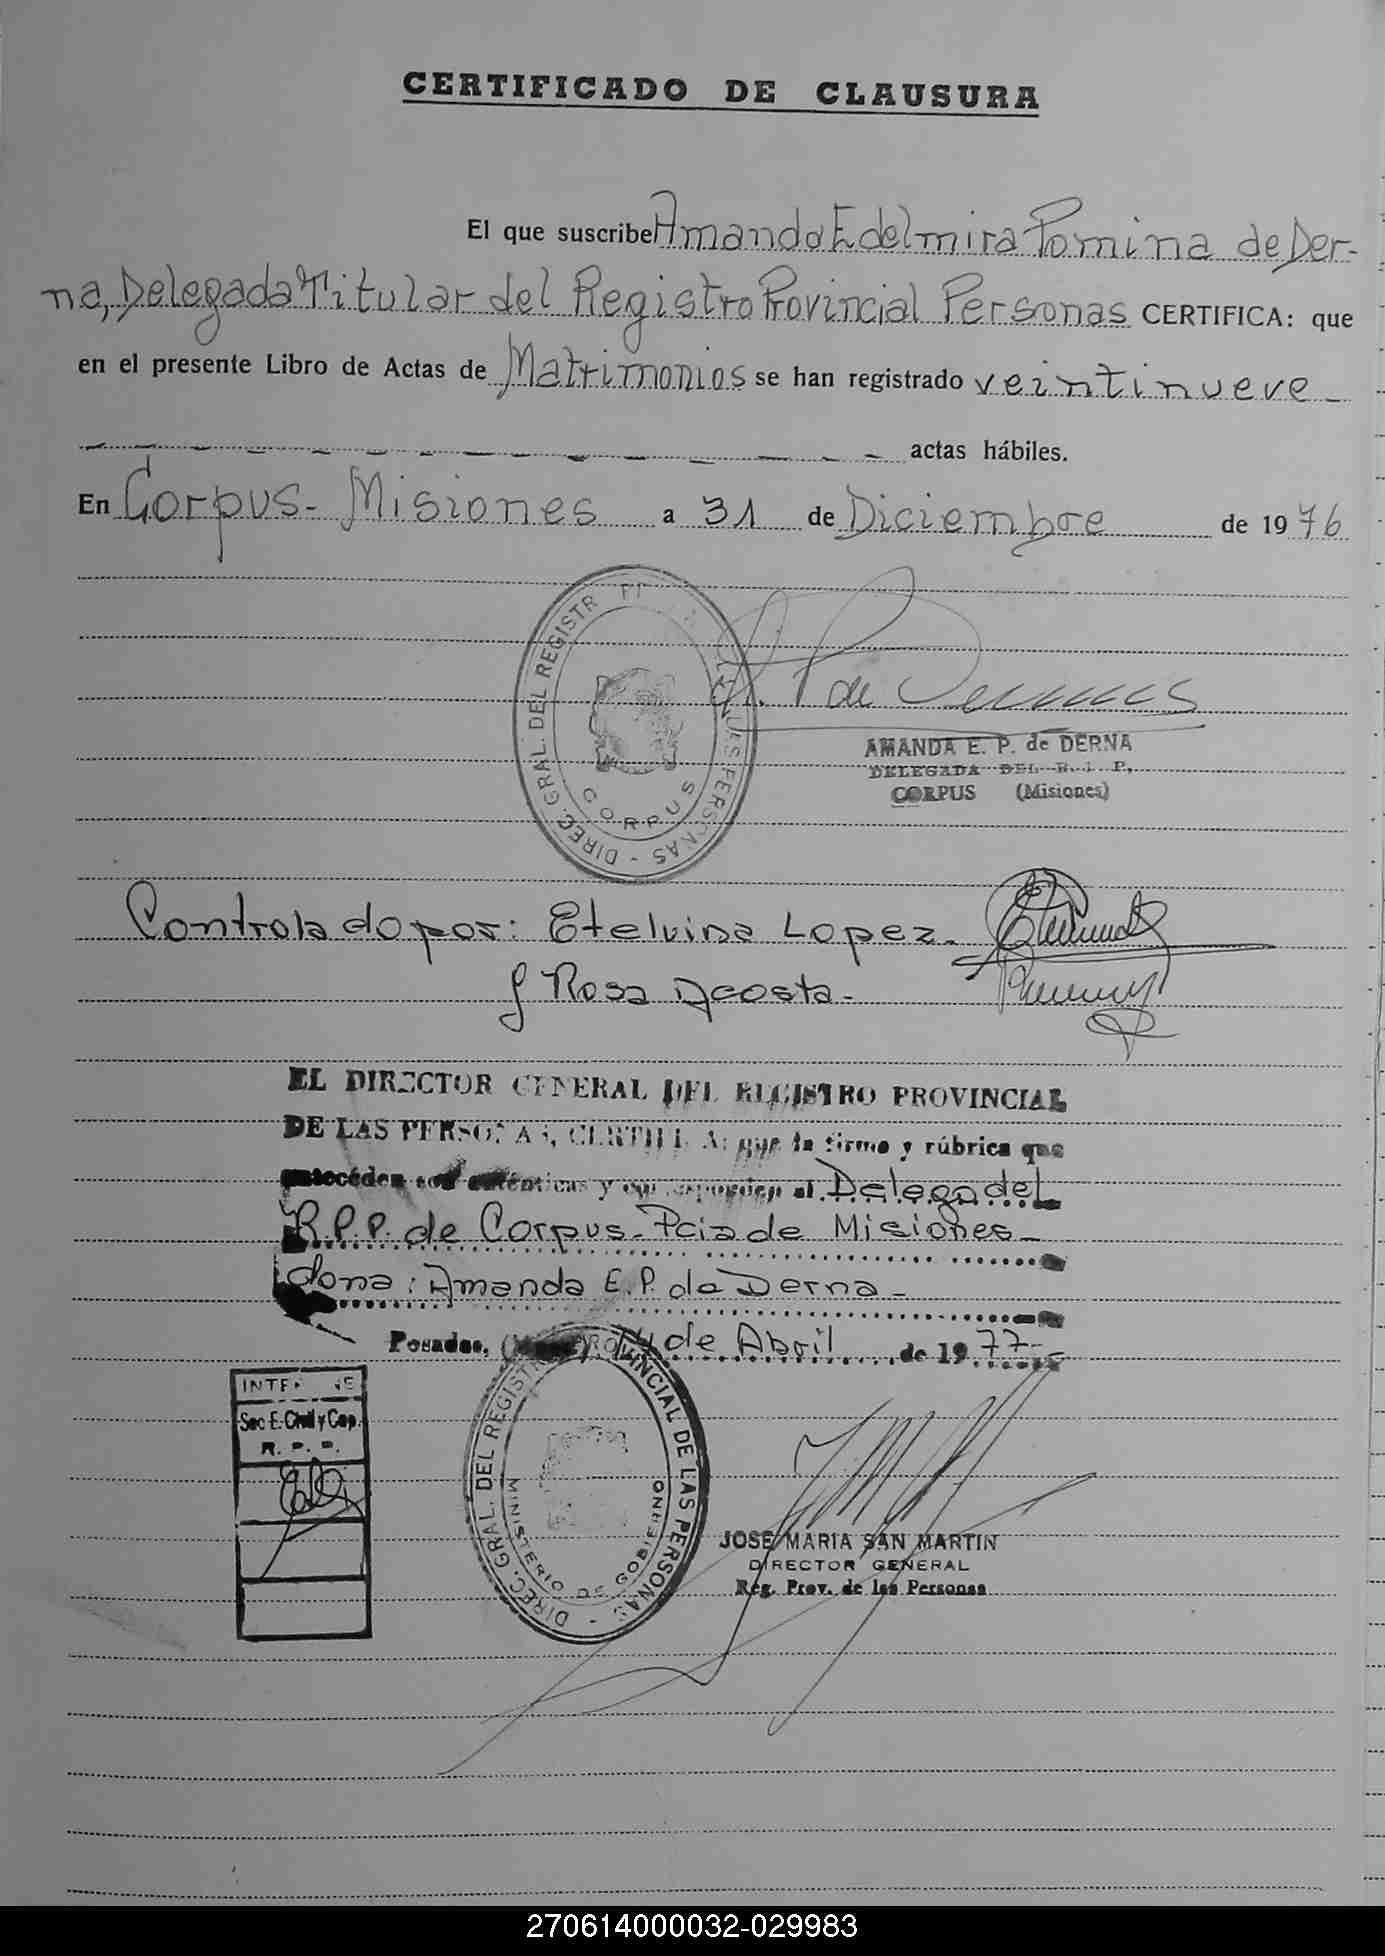 CERTIFICADO DE CLAUSURA
El que suscribe Amanda Edelmira Pomina de Der-
na, Delegada Titular del Registro Provincial Personas CERTIFICA: que
en el presente Libro de Actas de Matrimonios se han registrado veintinueve
actas hábiles.
En Corpus - Misiones a 31 de Diciembre de 1976
DIREC. GRAL. DEL REGISTR PERSONAS
CORPUS
AMANDA E. P. de DERNA
DELEGADA DEL R. P.
CORPUS (Misiones)
Controlado por: Etelvina Lopez.
y Rosa Acosta -
EL DIRECTOR GENERAL DEL REGISTRO PROVINCIAL
DE LAS PERSONAS, CERTIFICA: que la firma y rúbrica que
anteceden son auténticas y corresponden al Delega del
R.P.P. de Corpus - Pcia de Misiones -
dona: Amanda E. P. de Derna -
Posadas, 14 de Abril de 1977 -
INTERVINE
Sec E. Civil y Cap.
R. P. P.
DIREC. GRAL. DEL REGISTRO PROVINCIAL DE LAS PERSONAS -
MINISTERIO DE GOBIERNO
JOSE MARIA SAN MARTIN
DIRECTOR GENERAL
Reg. Prov. de las Personas
270614000032-029983